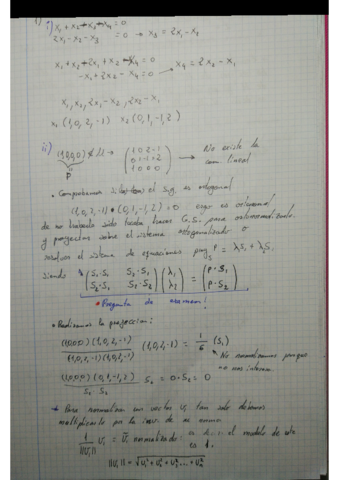 1) i) x₁ + x₂ + x₃ + x₄ = 0
2x₁ - x₂ - x₃ = 0 → x₃ = 2x₁ - x₂
x₁ + x₂ + 2x₁ - x₂ + x₄ = 0
-x₁ + 2x₂ - x₄ = 0 → x₄ = 2x₂ - x₁
x₁, x₂, 2x₁ - x₂, 2x₂ - x₁
x₁ (1, 0, 2, -1) x₂ (0, 1, -1, 2)
ii) (1,0,0,0) ∉ U → (1 0 2 -1
0 1 -1 2
1 0 0 0) → No existe la
com lineal
P
• Comprobamos si el sig. es ortogonal
(1,0,2,-1) • (0,1,-1,2) = 0 ergo es ortogonal
de no haberlo sido hacer G.S. para
y proyectar sobre el sistema ortogonalizado o
resolver el sistema de ecuaciones proy_S P = λ₁S₁ + λ₂S₂
siendo * (S₁·S₁ S₂·S₁
S₁·S₂ S₂·S₂) (λ₁
λ₂) = (P·S₁
P·S₂)
* Pregunta de examen!
• Realizamos la proyeccion:
(1,0,0,0)(1,0,2,-1) / (1,0,2,-1)(1,0,2,-1) (1,0,2,-1) = 1/6 (S₁)
(1,0,0,0)(0,1,-1,2) / S₂ S₂ S₂ = 0·S₂ = 0
No normalizamos porque
no nos interesa
→ Para normalizar un vector U₁ tan solo debemos
multiplicarlo por la inver. de su norma
1/||U₁|| U₁ = U₁ normalizado: el modulo de este
es 1.
||U₁|| = √(U₁² + U₂² + U₃² ... + Uₙ²)